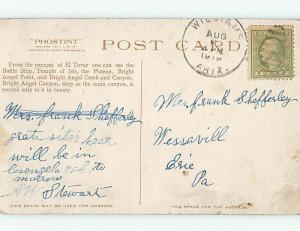 "PHOSTINT"
POST CARD
WILLIAMS
AUG
4 PM
1919
ARIZ.
From the parapet of El Tovar one can see the
Battle Ship, Temple of Isis, the Plateau, Bright
Angel Point, and Bright Angel Creek and Canyon.
Bright Angel Canyon, deep as the main canyon, is
second only to it in beauty.
Mrs. Frank Shefferley
grate sites hear
will be in
losengeles to
morrow
Stewart
Mrs. Frank Shefferley
Wessavill
Erie
Pa
THIS SPACE MAY BE USED FOR MESSAGE.
THIS SPACE IS FOR THE ADDRESS.